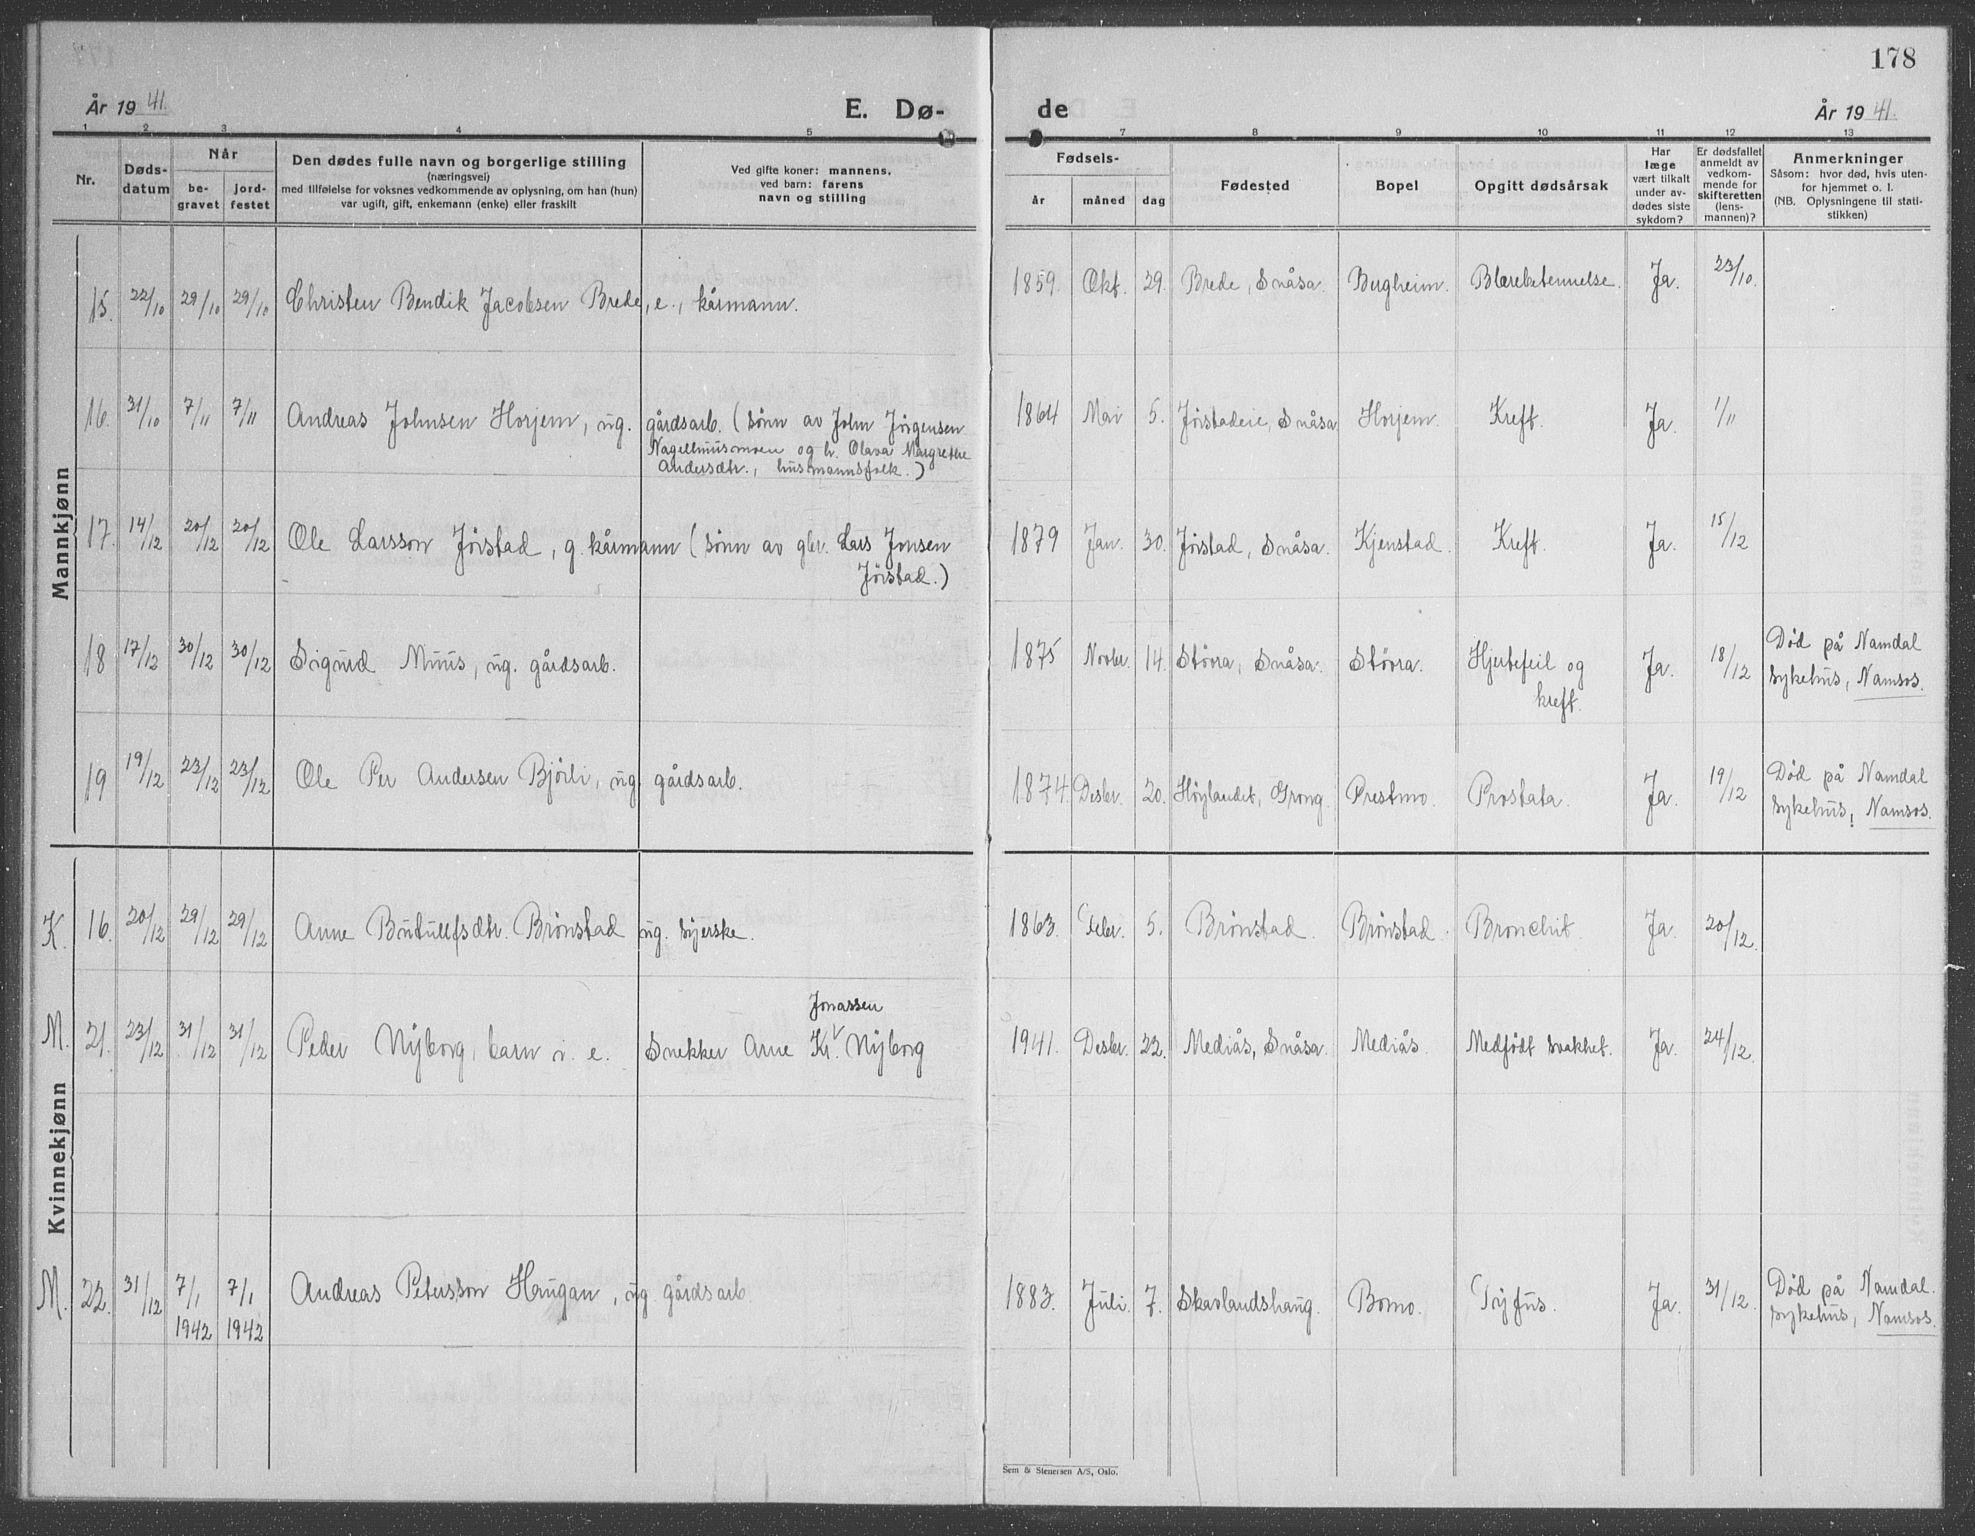 178
År 1941.
E. Dø-
de
År 1941.
1 2 3 4 5 7 8 9 10 11 12 13
Nr.
Døds-
datum
Når
be-
gravet
jord-
festet
Den dødes fulle navn og borgerlige stilling
(næringsvei)
med tilføielse for voksnes vedkommende av oplysning, om han (hun)
var ugift, gift, enkemann (enke) eller fraskilt
Ved gifte koner: mannens,
ved barn: farens
navn og stilling
Fødsels-
år
måned
dag
Fødested
Bopel
Opgitt dødsårsak
Har
læge
vært tilkalt
under av-
dødes siste
sykdom?
Er dødsfallet
anmeldt av
vedkom-
mende for
skifteretten
(lens-
mannen)?
Anmerkninger
Såsom: hvor død, hvis uten-
for hjemmet o. l.
(NB. Oplysningene til stati-
stikken)
Mannkjønn
15. 22/10 29/10 29/10 Christen Bendik Jacobsen Brede, e., kårmann. 1859. Okt. 29. Brede, Snåsa. Bugheim. Blærebetennelse. Ja. 23/10.
16. 31/10 7/11 7/11 Andreas Johnsen Horjem, ug. gårdsarb. (sønn av John Jørgensen 1864 Mai 5. Jørstadeie, Snåsa Horjem. Kreft. Ja. 1/11
Nagelhusmoen og h. Olava Margrethe
Andersdtr., husmannsfolk.)
17. 14/12 20/12 20/12 Ole Larsson Jørstad, g. kårmann (sønn av gbr. Lars Jonsen 1879 Jan. 30. Jørstad, Snåsa. Kjenstad. Kreft. Ja. 15/12
Jørstad.)
18 17/12 30/12 30/12 Sigurd Muus, ug. gårdsarb. 1875 Novbr. 14. Størra, Snåsa. Størra. Hjertefeil og Ja. 18/12 Død på Namdal
kreft. sykehus, Namsos.
19 19/12 23/12 23/12 Ole Per Andersen Bjørli, ug. gårdsarb. 1874. Desbr. 20. Høylandet, Grong. Prestmo. Prostata. Ja. 19/12 Død på Namdal
sykehus, Namsos.
K. 16. 20/12 29/12 29/12 Anne Brutullfsdtr. Brønstad ug. syerske. 1863. Febr. 5. Brønstad. Brønstad. Bronchit. Ja. 20/12.
Jonassen
M. 21. 23/12 31/12 31/12 Peder Nyborg, barn i. e. Snekker Arne Kr. V Nyborg 1941. Desbr. 22. Mediås, Snåsa. Mediås. Medfødt svakhet. Ja. 24/12.
Kvinnekjønn
M. 22. 31/12 7/1 7/1 Andreas Petersson Haugan, ug. gårdsarb. 1883. Juli 7. Skavlandshaug. Bomo. Tyfus. Ja. 31/12. Død på Namdal.
1942 1942 sykehus, Namsos.
Sem & Stenersen A/S, Oslo.